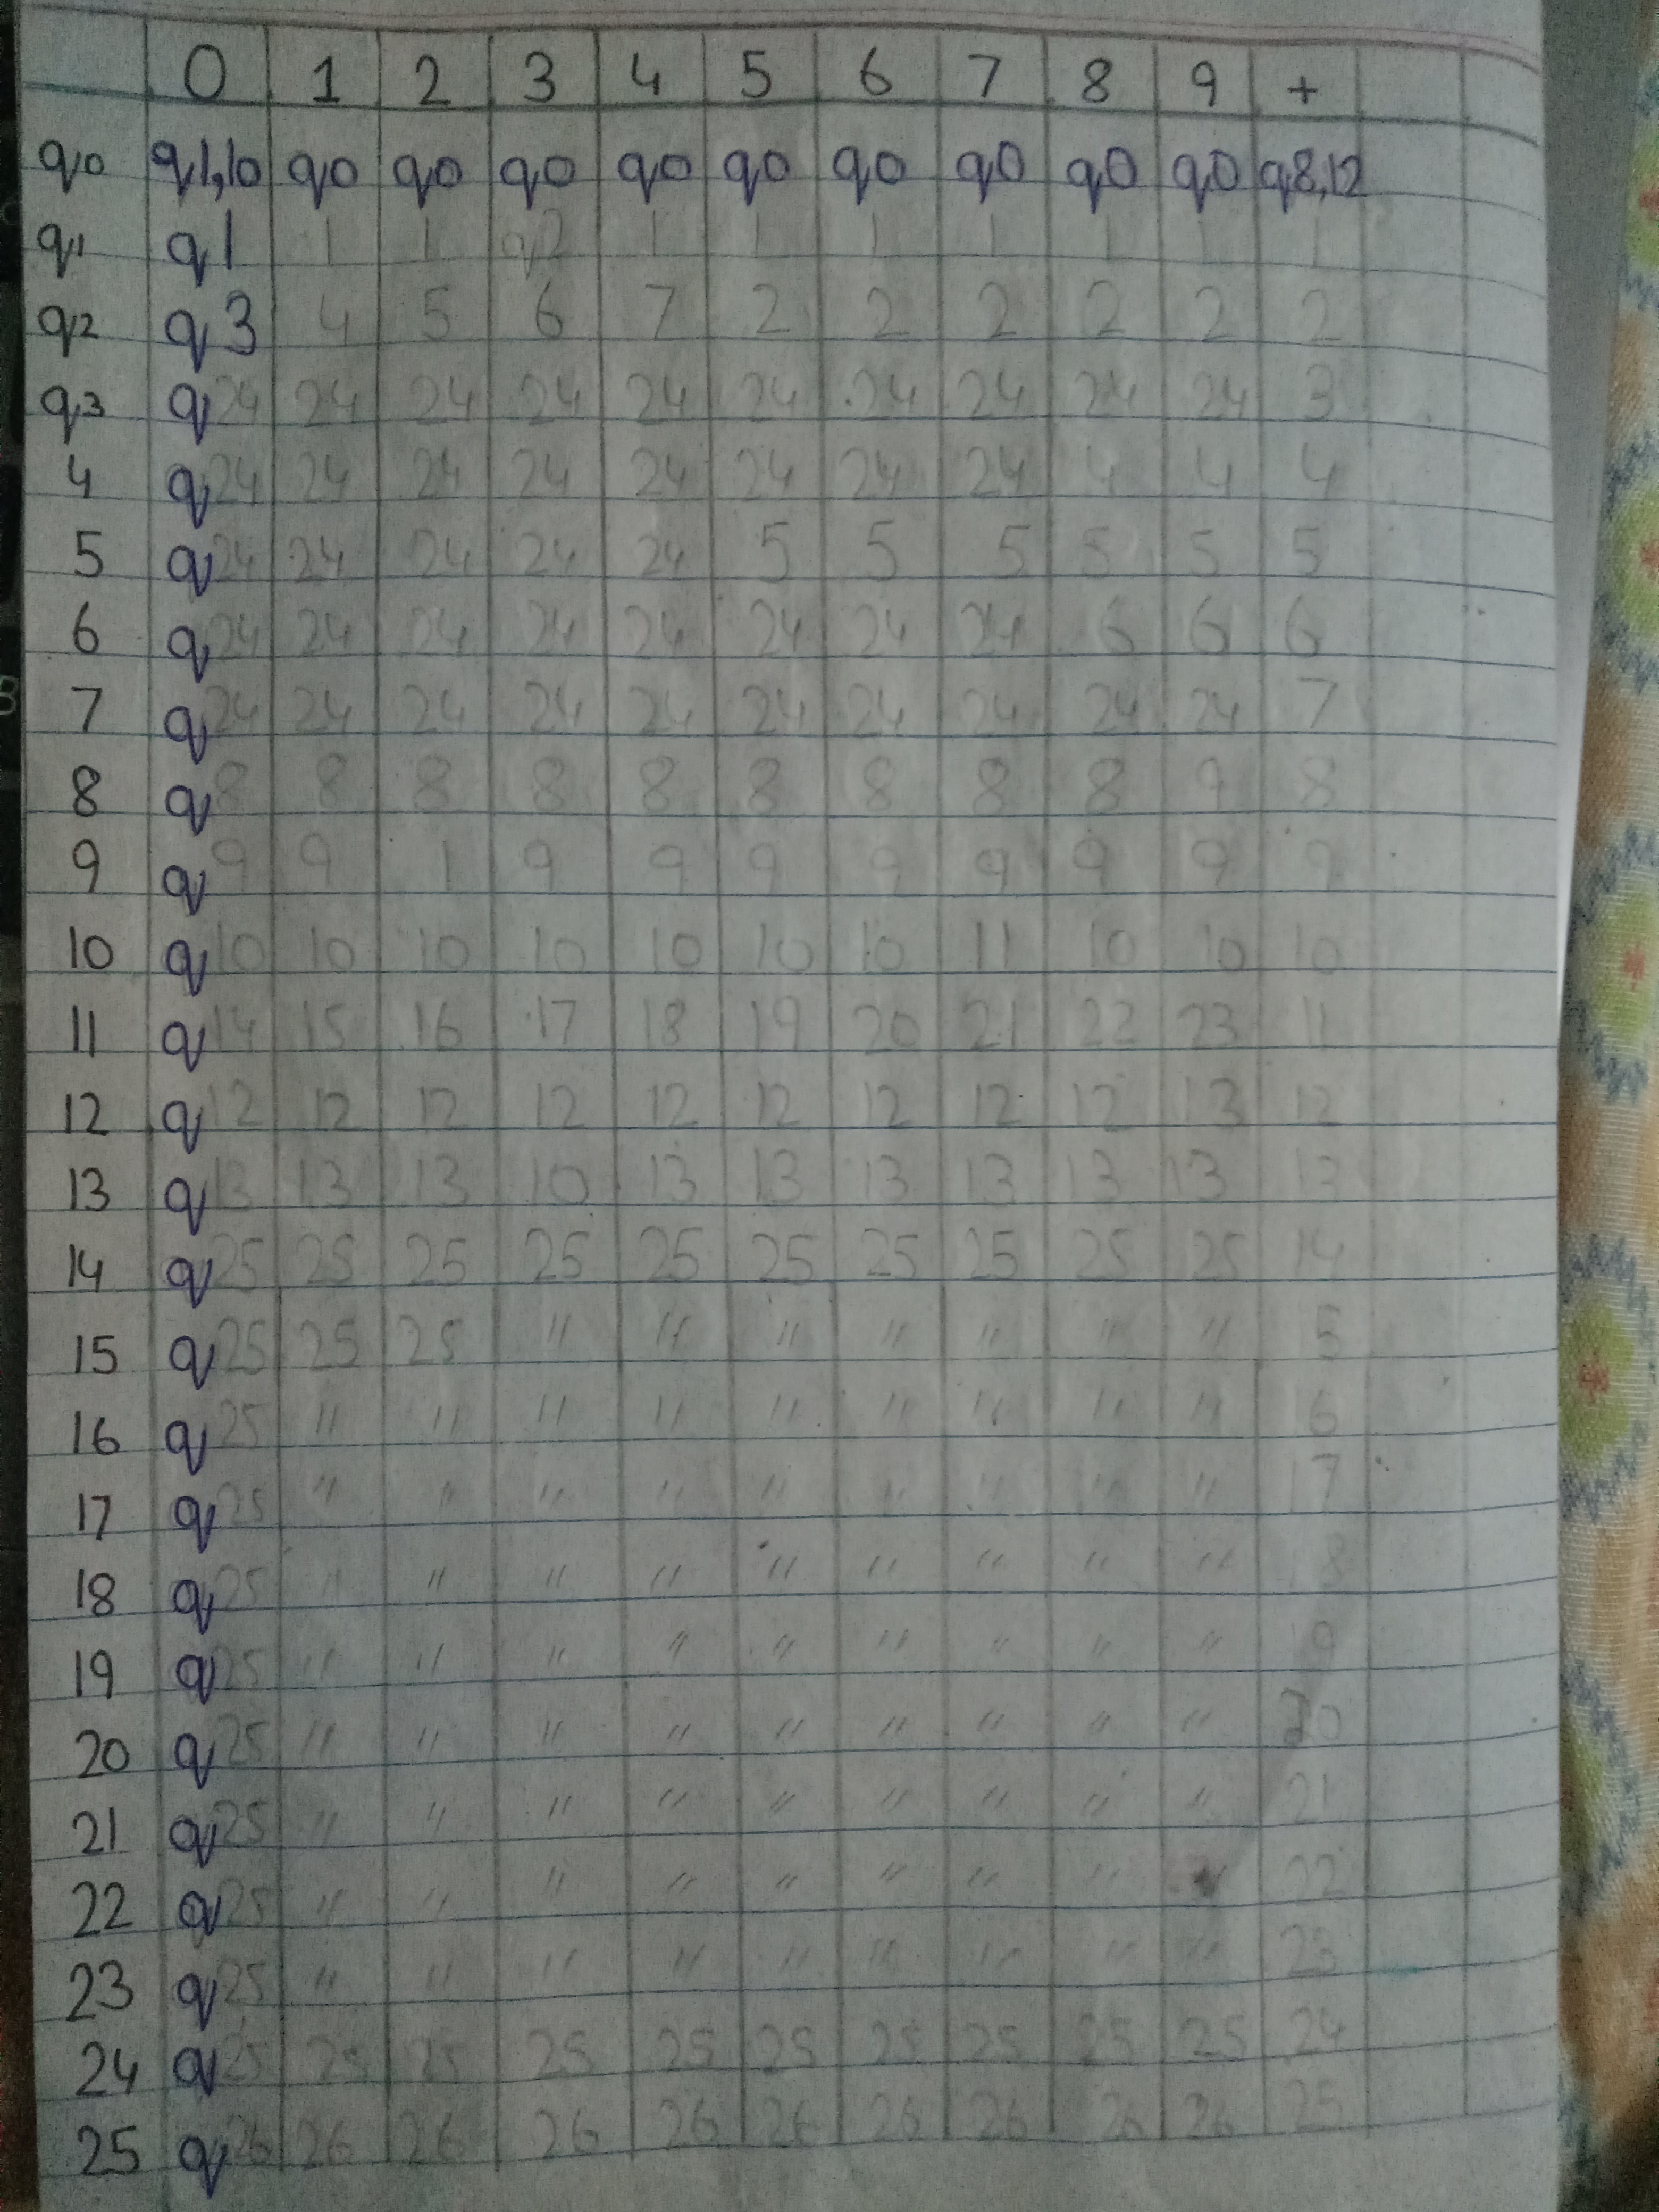 0 1 2 3 4 5 6 7 8 9 +
q0 q1,10 q0 q0 q0 q0 q0 q0 q0 q0 q0 q8,12
q1 q1 1 1 q2 1 1 1 1 1 1 1
q2 q3 4 5 6 7 2 2 2 2 2 2
q3 q24 24 24 24 24 24 24 24 24 24 3
4 q24 24 24 24 24 24 24 24 4 4 4
5 q24 24 24 24 24 5 5 5 5 5 5
6 q24 24 24 24 24 24 24 24 6 6 6
7 q24 24 24 24 24 24 24 24 24 24 7
8 q8 8 8 8 8 8 8 8 8 9 8
9 q9 9 1 9 9 9 9 9 9 9 9
10 q10 10 10 10 10 10 10 11 10 10 10
11 q14 15 16 17 18 19 20 21 22 23 11
12 q12 12 12 12 12 12 12 12 12 13 12
13 q13 13 13 10 13 13 13 13 13 13 13
14 q25 25 25 25 25 25 25 25 25 25 14
15 q25 25 25 " " " " " " " 5
16 q25 " " " " " " " " " 6
17 q25 " " " " " " " " " 17
18 q25 " " " " " " " " " 18
19 q25 " " " " " " " " " 19
20 q25 " " " " " " " " " 20
21 q25 " " " " " " " " " 21
22 q25 " " " " " " " " " 22
23 q25 " " " " " " " " " 23
24 q25 25 25 25 25 25 25 25 25 25 24
25 q26 26 26 26 26 26 26 26 26 26 25